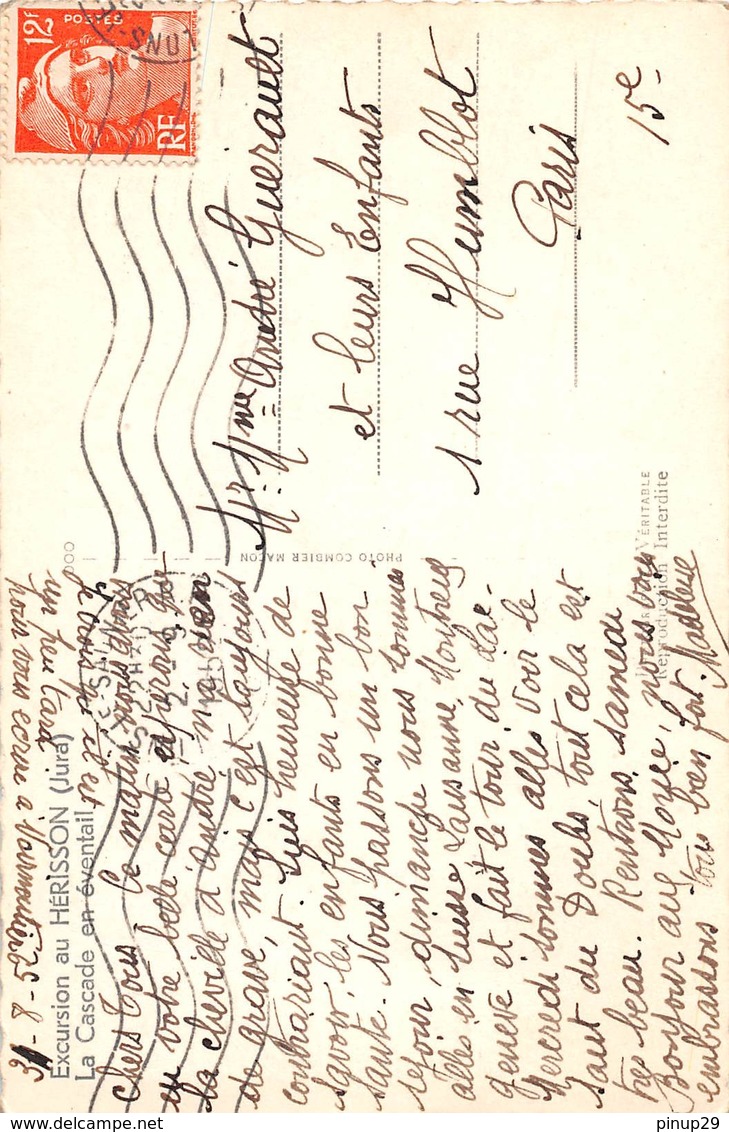 12F
POSTES
RF
Excursion au HÉRISSON (Jura)
La Cascade en éventail
25-8
Je crois qu'il est
un peu tard
pour vous ecrire à Noirmoutiers
Chers Tous, ce matin
eu votre belle carte espérons que
la cheville d'André n'a rien
de grave, mais c'est toujours
contrariant. Suis heureuse de
savoir les enfants en bonne
santé. Nous passons un bon
séjour, dimanche nous sommes
allés en Suisse Lausanne, Montreux
Genève et fait le tour du Lac-
Mercredi sommes allés voir le
Saut du Doubs tout cela est
très beau. Rentrons samedi
Bonjour aux nous vous
embrassons tous bien fort. Madeleine
PHOTO COMBIER MACON
Mr. Mme André Guerault
et leurs Enfants
1 rue Humblot
Paris
15e
VÉRITABLE
Reproduction Interdite
pinup29